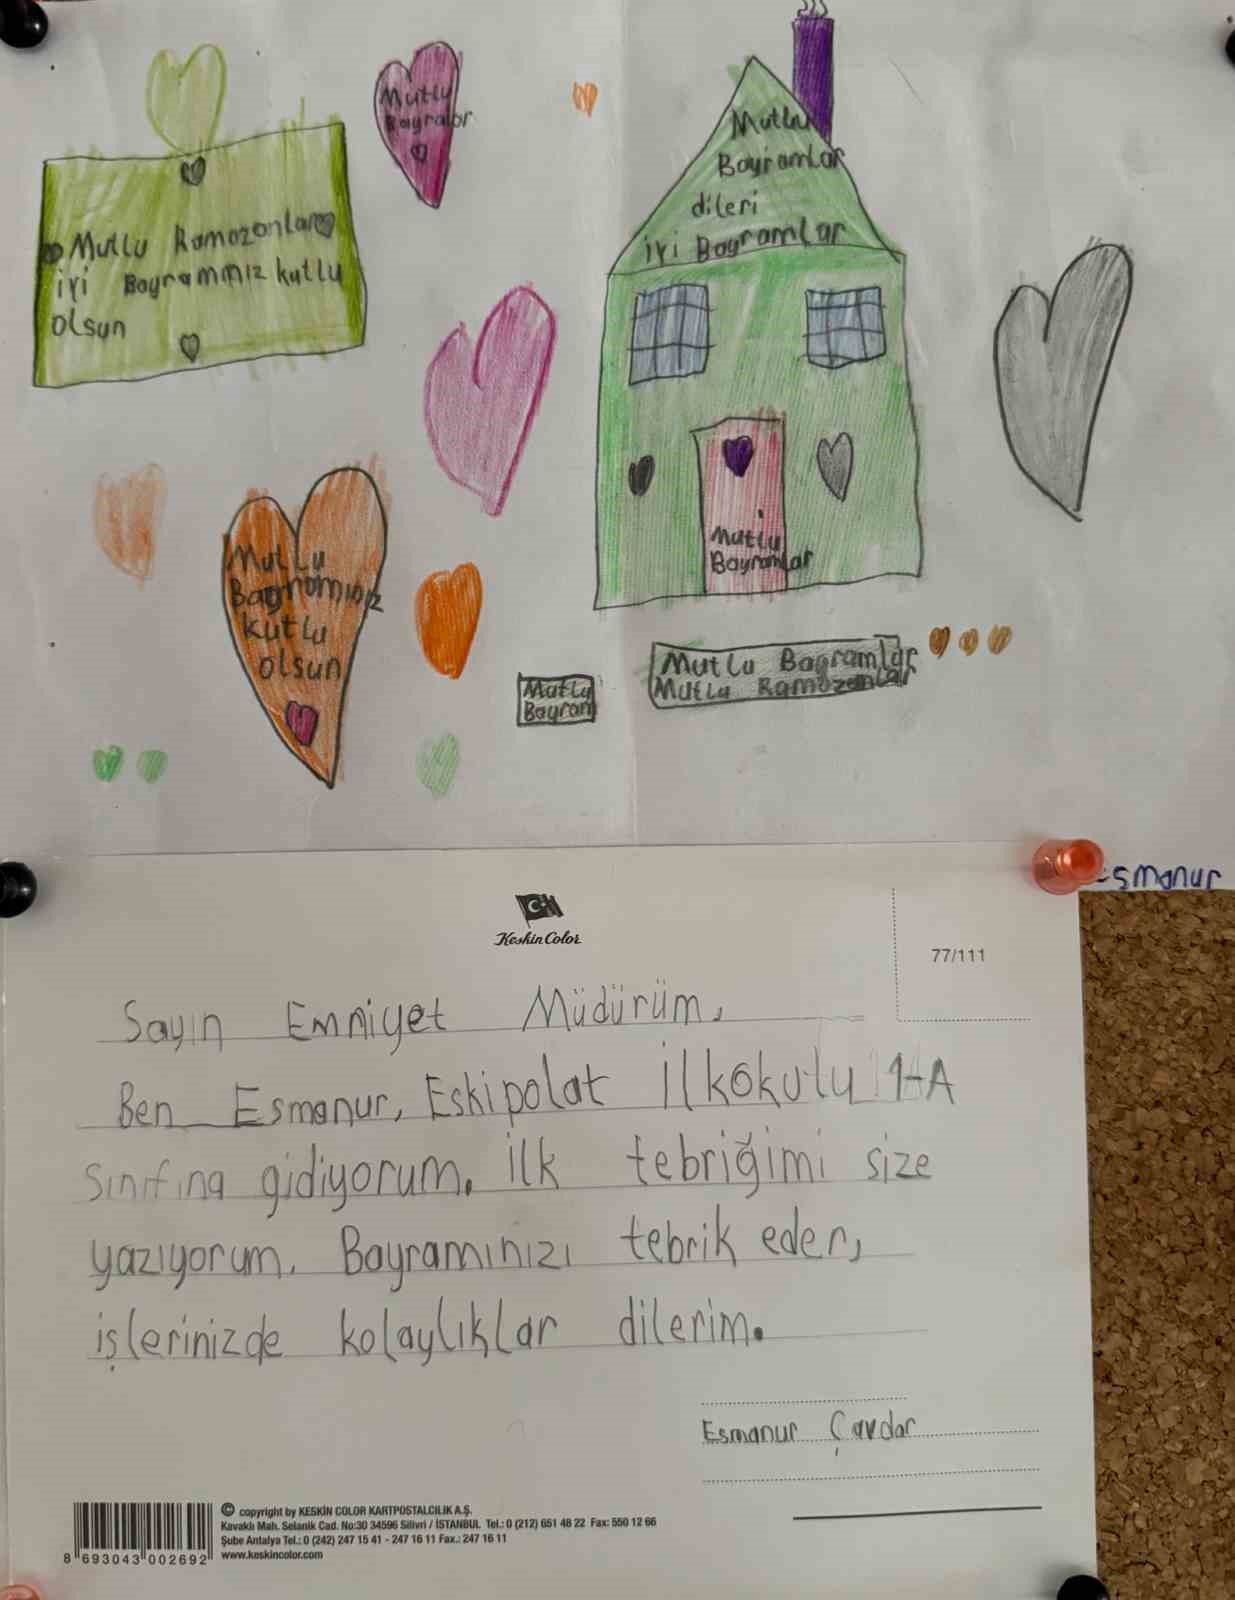 Mutlu
Bayralar
Mutlu Ramazanlar
iyi Bayramınız kutlu
olsun
Mutlu
Bayramlar
dileri
iyi Bayramlar
Mutlu
Bayramlar
Mutlu
Bayramınız
kutlu
olsun
Mutlu
Bayram
Mutlu Bayramlar
Mutlu Ramazanlar
Esmanur
Keskin Color
77/111
Sayın Emniyet Müdürüm,
Ben Esmanur, Eskipolat İlkokulu 1-A
sınıfına gidiyorum. İlk tebriğimi size
yazıyorum. Bayramınızı tebrik eder,
işlerinizde kolaylıklar dilerim.
Esmanur Çavdar
© copyright by KESKİN COLOR KARTPOSTALCILIK A.Ş.
Kavaklı Mah. Selanik Cad. No:30 34596 Silivri / İSTANBUL Tel.: 0 (212) 651 48 22 Fax: 550 12 66
Şube Antalya Tel.: 0 (242) 247 15 41 - 247 16 11 Fax.: 247 16 11
www.keskincolor.com
8 693043 002692